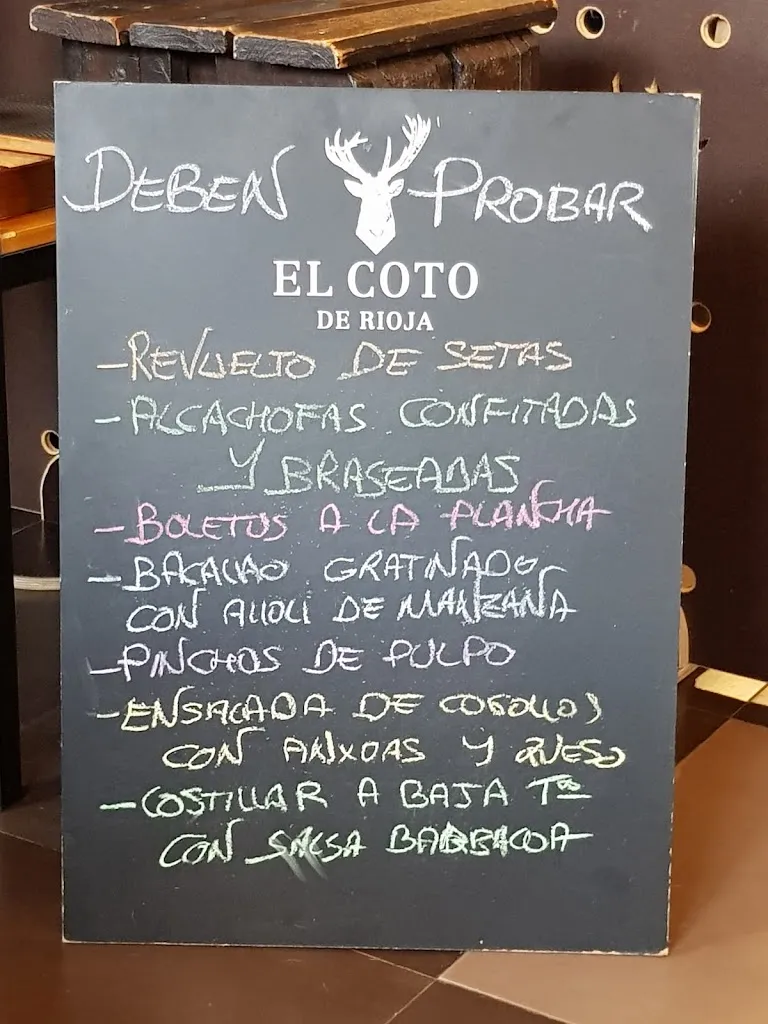 DEBEN PROBAR
EL COTO
DE RIOJA
-REVUELTO DE SETAS
-ALCACHOFAS CONFITADAS
Y BRASEADAS
-BOLETUS A LA PLANCHA
-BACALAO GRATINADO
CON ALIOLI DE MANZANA
-PINCHOS DE PULPO
-ENSALADA DE COGOLLOS
CON ANXOAS Y QUESO
-COSTILLAR A BAJA Tª
CON SALSA BARBACOA